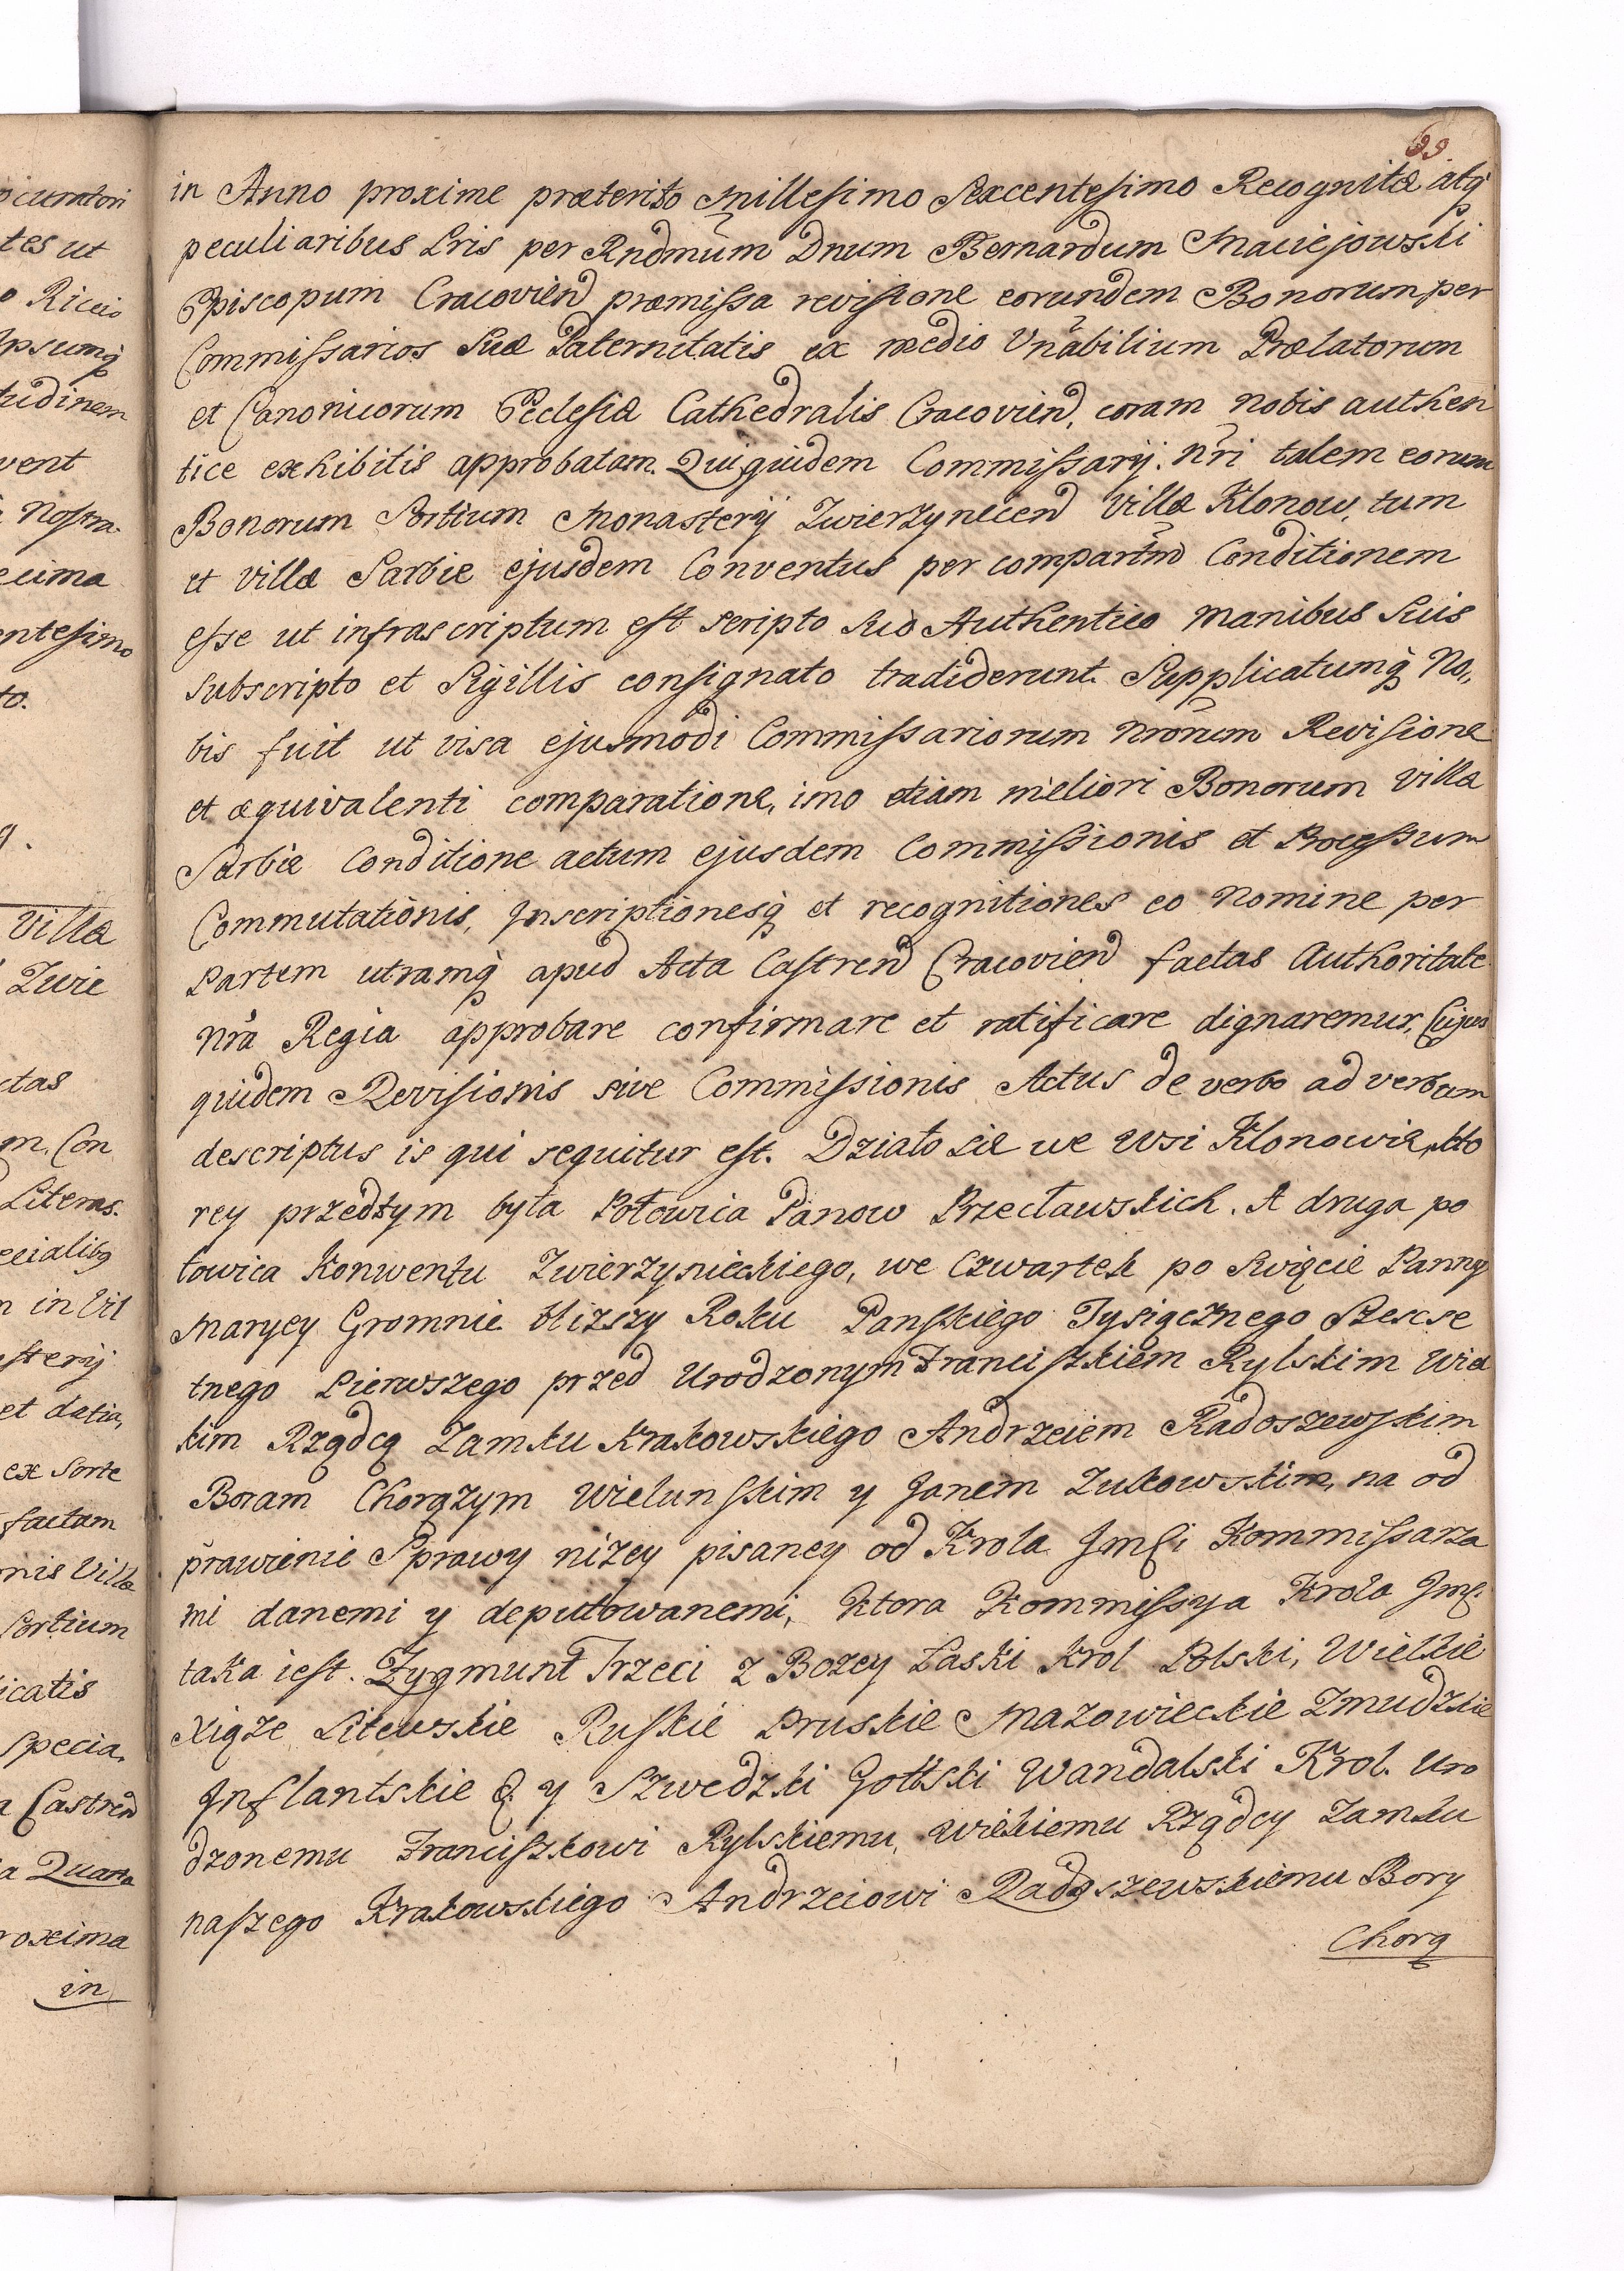 69
in Anno proxime præterito Millesimo Sexcentesimo Recognitæ atq̃
peculiaribus Lris per Rndmũm Dnum Bernardum Maciejowski
Episcopum Cracovien præmissa revisione eorundem Bonorum per
Commissarios Suæ Paternitatis ex medio Vnãbilium Prælatorum
et Canonicorum Ecclesiæ Cathedralis Cracovien, coram nobis authen
tice exhibitis approbatam. Qui quidem Commissarij nr̃i talem eorum
Bonorum Sortium Monasterij Zwierzynecen Villæ Klonow, tum
et villæ Sarbie ejusdem Conventus per compartm̃ Conditionem
esse ut infrascriptum est scripto suo Authentico manibus suis
subscripto et Sigillis consignato tradiderunt. Supplicatumq̃ No,
bis fuit ut visa ejusmodi Commissariorum nrõrum Revisione
et æquivalenti comparatione, imo etiam meliori Bonorum villæ
Sarbiæ Conditione actum ejusdem Commissionis et Processum
Commutationis, Inscriptionesq̃ et recognitiones eo nomine per
Partem utramq̃ apud Acta Castren Cracovien factas Authoritate
nrã Regia approbare confirmare et ratificare dignaremur, Cujus
quidem Revisionis sive Commissionis Actus de verbo ad verbum
descriptus is qui sequitur est. Działo sie we Wsi Klonowie, kto
rey przedtym była Połowica Panow Przecławskich. A druga po
łowica Konwentu Zwierzynieckiego, we Czwartek po Swięcie Panny
Maryey Gromnic bliższy Roku Panskiego Tysiącznego Szescse
tnego Pierwszego przed Urodzonym Franciszkiem Rylskim Wiel
kim Rządcą Zamku Krakowskiego Andrzeiem Radoszewskim
Boxam Chorążym Wielunskim y Janem Zukowskim, na od
prawienie Sprawy niżey pisaney od Krola JmCi Kommissarza
mi danemi y deputowanemi, ktora Kommissya Krola JmC.
taka iest. Zygmunt Trzeci z Bozey Łaski Krol Polski, Wielkie
Xiąże Litewskie Ruskie Pruskie Mazowieckie Zmudzkie
Inflantskie &. y Szwedzki Gottski Wandalski Krol. Uro
dzonemu Franciszkowi Rylskiemu, wielkiemu Rządcy Zamku
naszego Krakowskiego Andrzeiowi Radoszewskiemu Bory
Chorą